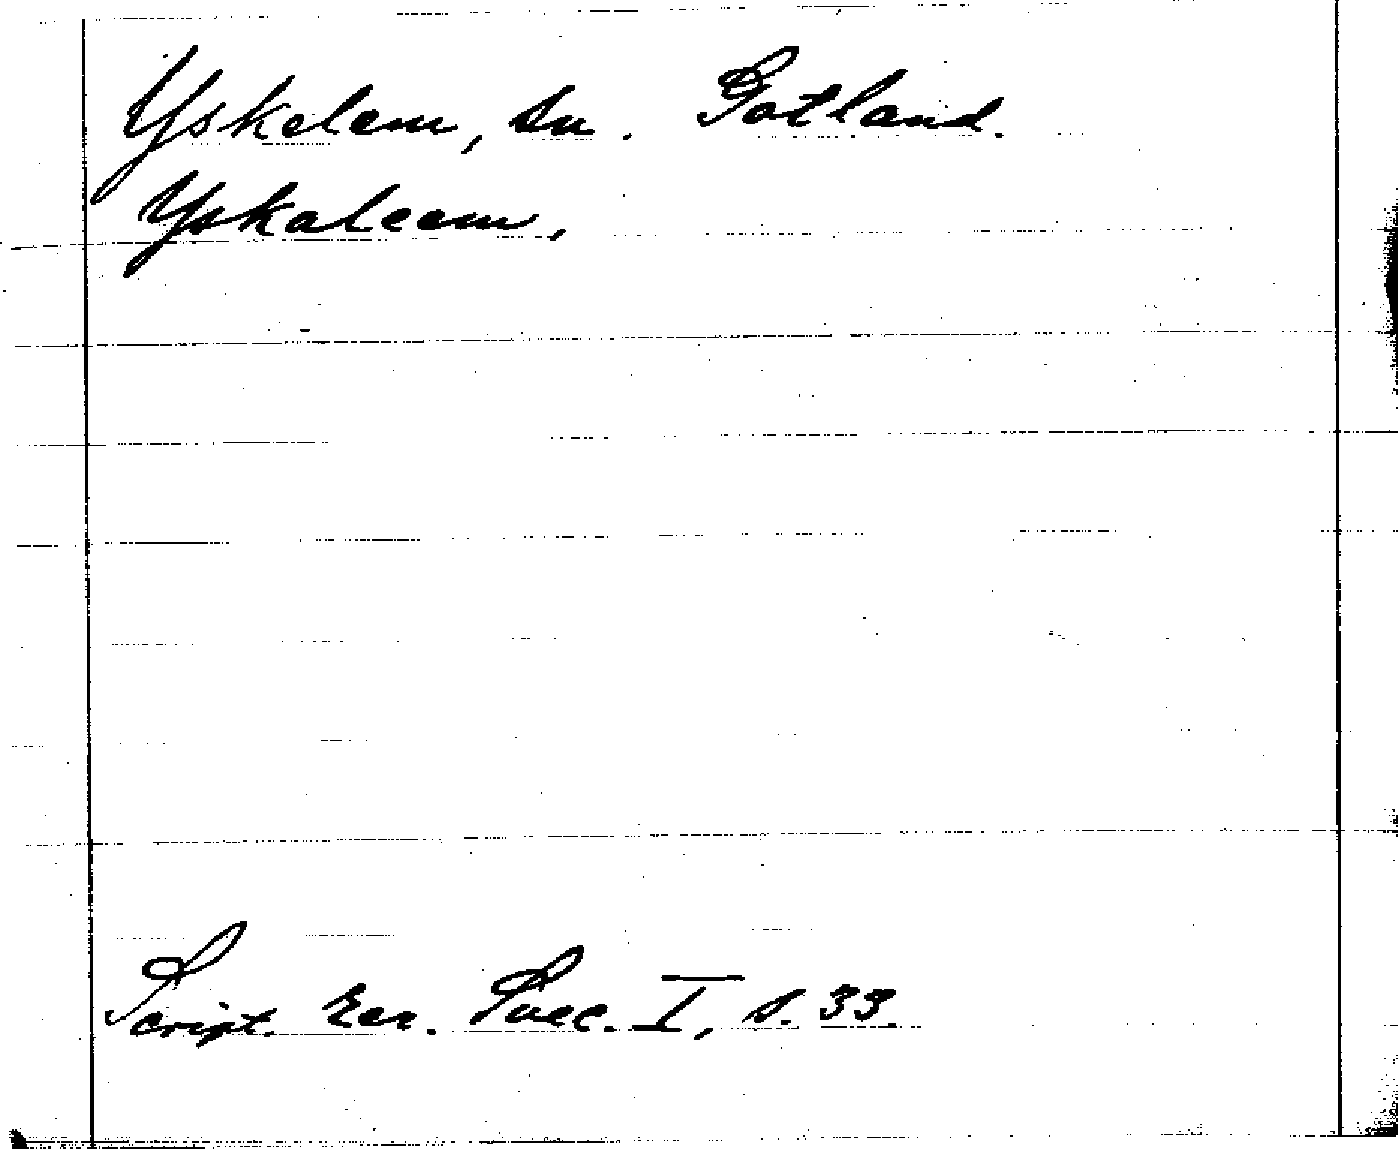 Yskelem, sn. Gotland.
Yskaleem,
Script. Rer. Suec. I, s. 33.